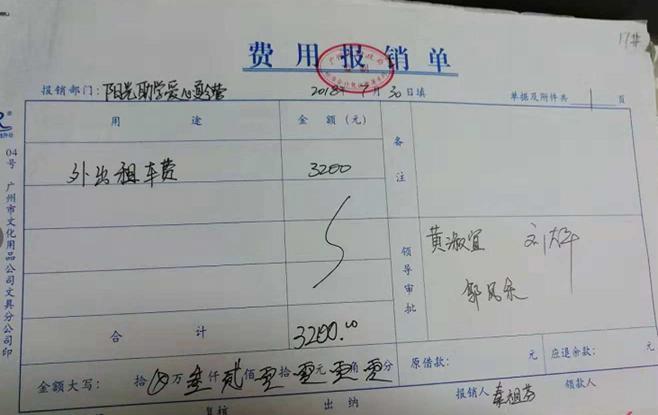 17#
费用报销单
报销部门：阳光助学爱心夏令营 2018年 7月 30日填 单据及附件共 1 页
用途 金额（元） 备注
外出租车费 3200
领导审批 黄淑宜
合计 3200.00
金额大写： 拾 万叁仟贰佰零拾零元零角零分 原借款： 元 应退余款： 元
复核 出纳 报销人 领款人
04号 广州市文化用品公司文具分公司印